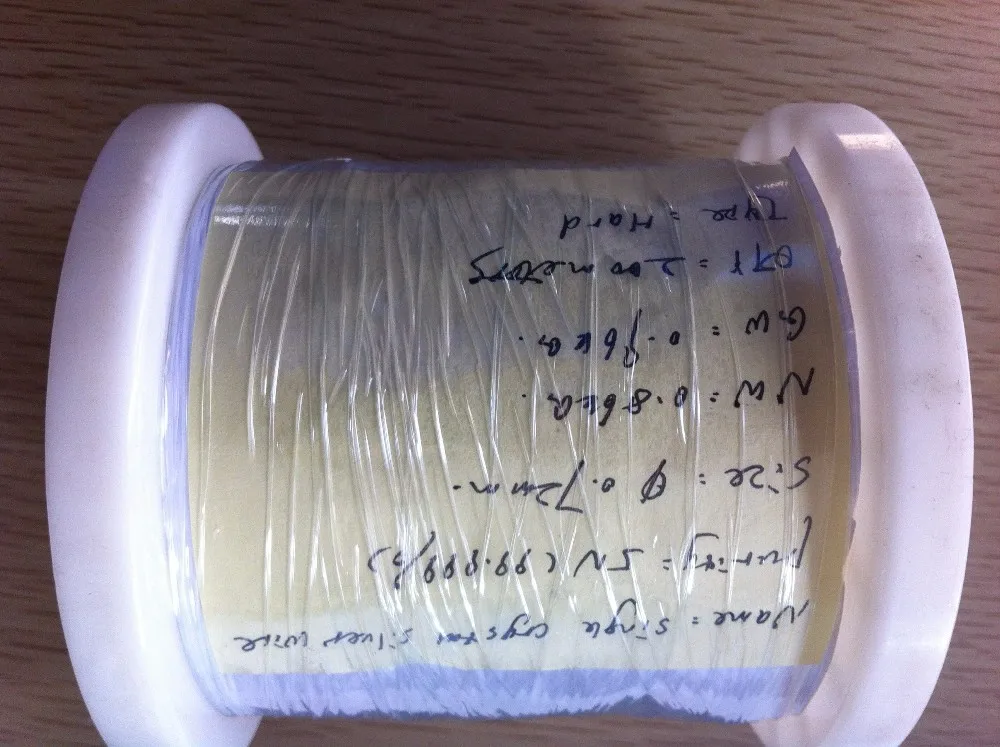 Name = Single Crystal Silver Wire
Purity = 5N (99.999%)
Size = φ 0.72mm.
NW = 0.86KG.
GW = 0.96KG.
QTY = 200 meters
Type = Hard